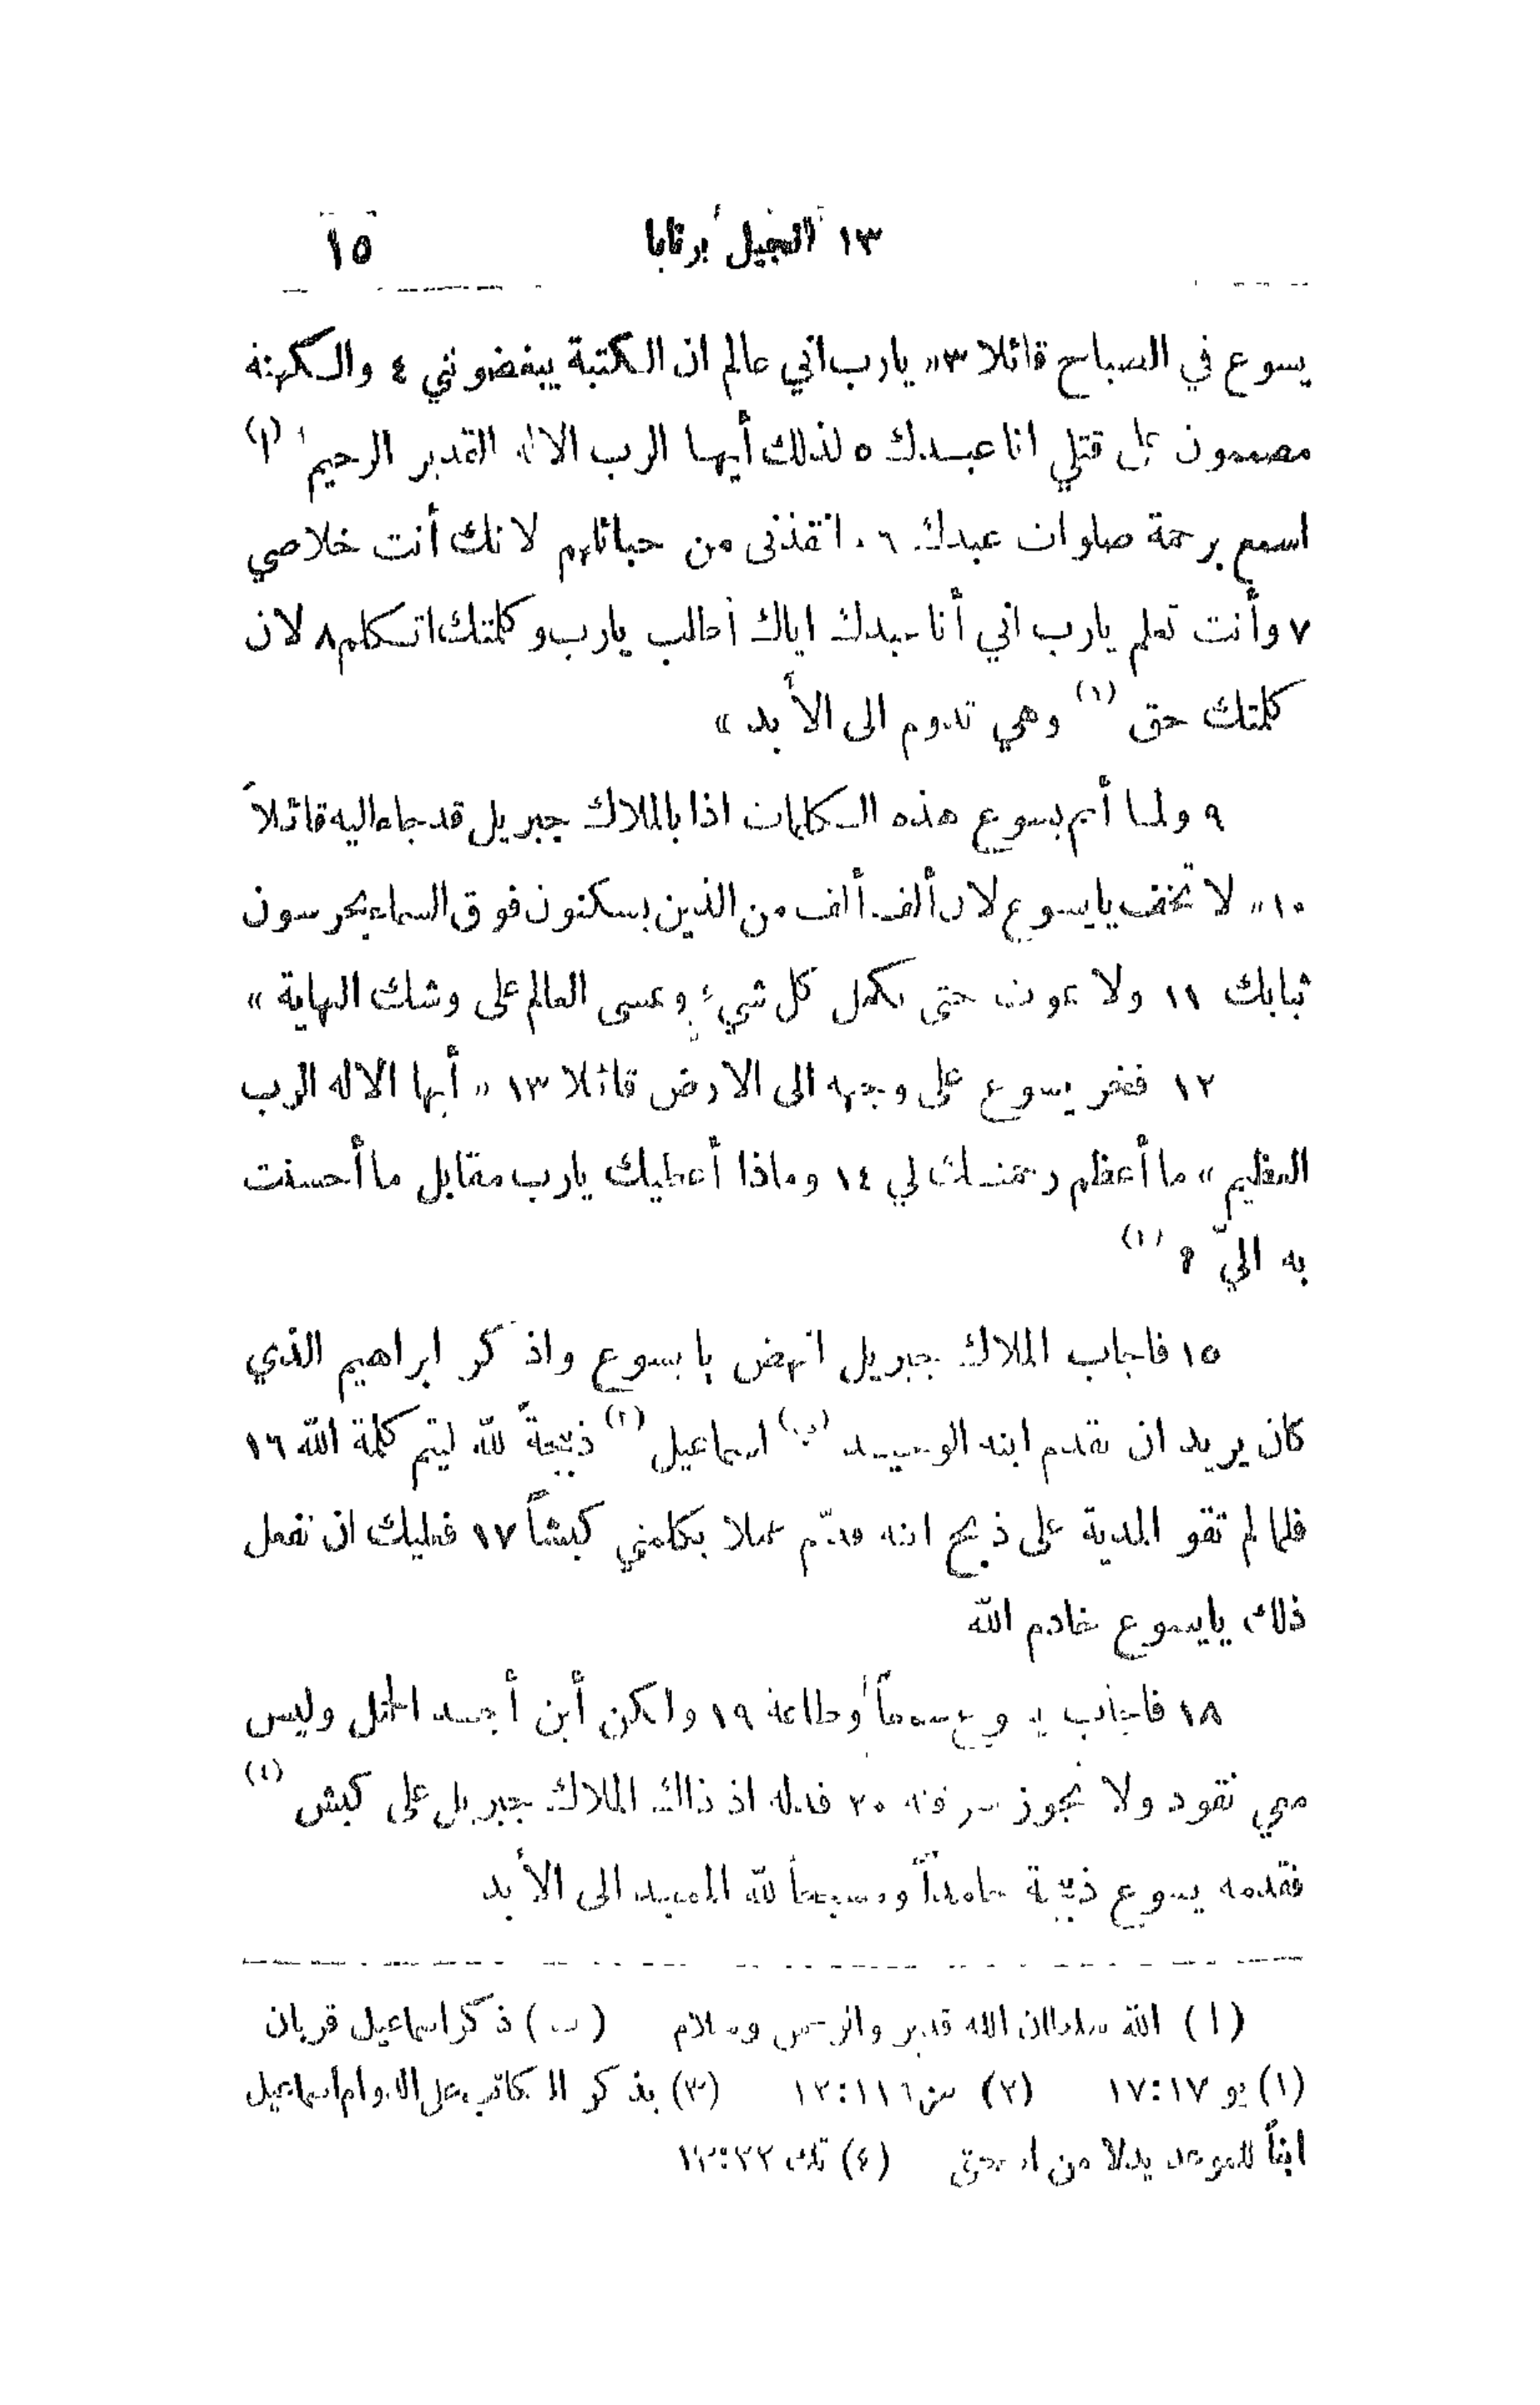 ١٣ انجيل برنابا ١٥
يسوع في الصباح قائلا ٣ « يارب اني عالم ان الكتبة يبغضونني ٤ والكهنة
مصممون على قتلي انا عبدك ٥ لذلك أيها الرب الاله القدير الرحيم (ا)
اسمع برحمة صلوات عبدك ٦ . انقذني من حبائلهم لانك أنت خلاصي
٧ وأنت تعلم يارب اني أنا عبدك اياك أطلب يارب وكلمتك اتكلم ٨ لان
كلمتك حق (١) وهي تدوم الى الأبد »
٩ ولما أتم يسوع هذه الكلمات اذا بالملاك جبريل قد جاء اليه قائلاً
١٠ « لا تخف يا يسوع لان ألف ألف من الذين يسكنون فوق السماء يحرسون
ثيابك ١١ ولا تموت حتى يكمل كل شيء ويمسى العالم على وشك النهاية »
١٢ فخر يسوع على وجهه الى الارض قائلا ١٣ « أيها الاله الرب
العظيم » ما أعظم رحمتك لي ١٤ وماذا أعطيك يارب مقابل ما أحسنت
به اليّ ؟ (٢)
١٥ فاجاب الملاك جبريل انهض يا يسوع واذكر ابراهيم الذي
كان يريد ان يقدم ابنه الوحيد (ب) اسماعيل (٣) ذبيحةً لله ليتم كلمة الله ١٦
فلما لم تقو المدية على ذبح ابنه قدّم عملا بكلمتي كبشاً ١٧ فعليك ان تفعل
ذلك يا يسوع خادم الله
١٨ فاجاب يسوع سمعاً وطاعة ١٩ ولكن أين أجد الحمل وليس
معي نقود ولا تجوز سرقته ٢٠ فدله اذ ذاك الملاك جبريل على كبش (٤)
فقدمه يسوع ذبيحة حامداً ومسبحاً لله الممجد الى الأبد
(ا) الله سلطان الله قدير والرحمن وسلام (ب) ذكر اسماعيل قربان
(١) يو ١٧:١٧ (٢) مز ١١٦:١٢ (٣) يذكر الكاتب على الدوام اسماعيل
ابناً للموعد بدلا من اسحق (٤) تك ٢٢:١٣